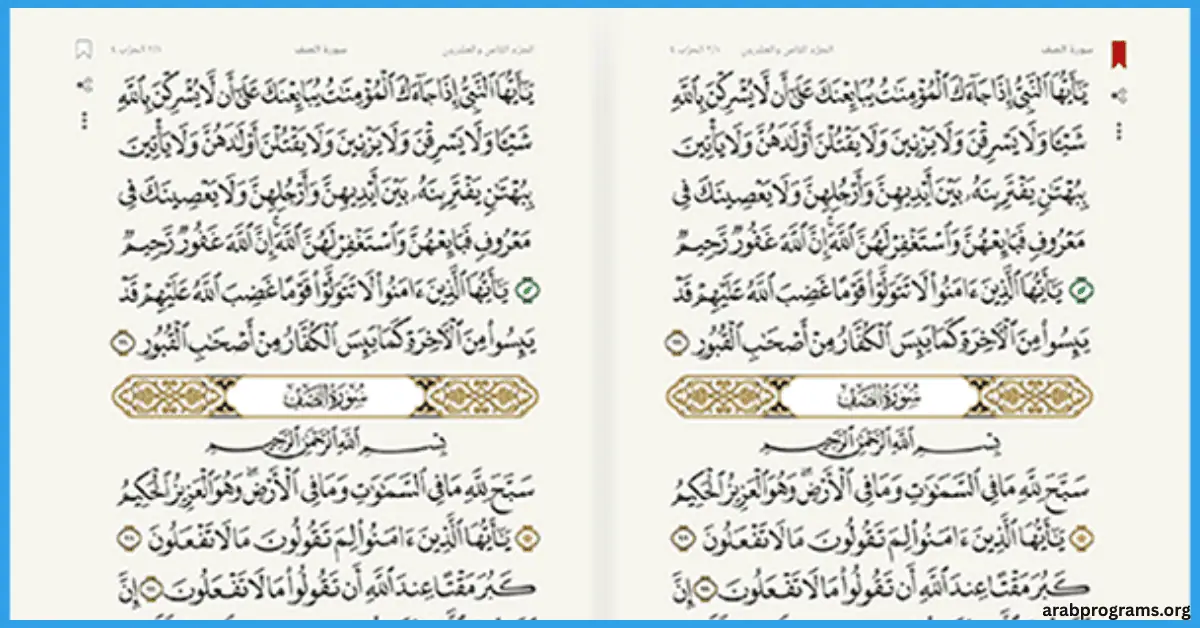 سورة الصف الجزء الثامن والعشرين
يَـٰٓأَيُّهَا ٱلنَّبِىُّ إِذَا جَآءَكَ ٱلْمُؤْمِنَـٰتُ يُبَايِعْنَكَ عَلَىٰٓ أَن لَّا يُشْرِكْنَ بِٱللَّهِ
شَيْـًٔا وَلَا يَسْرِقْنَ وَلَا يَزْنِينَ وَلَا يَقْتُلْنَ أَوْلَـٰدَهُنَّ وَلَا يَأْتِينَ
بِبُهْتَـٰنٍ يَفْتَرِينَهُۥ بَيْنَ أَيْدِيهِنَّ وَأَرْجُلِهِنَّ وَلَا يَعْصِينَكَ فِى
مَعْرُوفٍ فَبَايِعْهُنَّ وَٱسْتَغْفِرْ لَهُنَّ ٱللَّهَ ۖ إِنَّ ٱللَّهَ غَفُورٌ رَّحِيمٌ
يَـٰٓأَيُّهَا ٱلَّذِينَ ءَامَنُوا۟ لَا تَتَوَلَّوْا۟ قَوْمًا غَضِبَ ٱللَّهُ عَلَيْهِمْ قَدْ
يَئِسُوا۟ مِنَ ٱلْـَٔاخِرَةِ كَمَا يَئِسَ ٱلْكُفَّارُ مِنْ أَصْحَـٰبِ ٱلْقُبُورِ
سُورَةُ الصَّفِّ
بِسْمِ ٱللَّهِ ٱلرَّحْمَـٰنِ ٱلرَّحِيمِ
سَبَّحَ لِلَّهِ مَا فِى ٱلسَّمَـٰوَٰتِ وَمَا فِى ٱلْأَرْضِ ۖ وَهُوَ ٱلْعَزِيزُ ٱلْحَكِيمُ
يَـٰٓأَيُّهَا ٱلَّذِينَ ءَامَنُوا۟ لِمَ تَقُولُونَ مَا لَا تَفْعَلُونَ
كَبُرَ مَقْتًا عِندَ ٱللَّهِ أَن تَقُولُوا۟ مَا لَا تَفْعَلُونَ إِنَّ
الجزء الثامن والعشرين سورة الصف
يَـٰٓأَيُّهَا ٱلنَّبِىُّ إِذَا جَآءَكَ ٱلْمُؤْمِنَـٰتُ يُبَايِعْنَكَ عَلَىٰٓ أَن لَّا يُشْرِكْنَ بِٱللَّهِ
شَيْـًٔا وَلَا يَسْرِقْنَ وَلَا يَزْنِينَ وَلَا يَقْتُلْنَ أَوْلَـٰدَهُنَّ وَلَا يَأْتِينَ
بِبُهْتَـٰنٍ يَفْتَرِينَهُۥ بَيْنَ أَيْدِيهِنَّ وَأَرْجُلِهِنَّ وَلَا يَعْصِينَكَ فِى
مَعْرُوفٍ فَبَايِعْهُنَّ وَٱسْتَغْفِرْ لَهُنَّ ٱللَّهَ ۖ إِنَّ ٱللَّهَ غَفُورٌ رَّحِيمٌ
يَـٰٓأَيُّهَا ٱلَّذِينَ ءَامَنُوا۟ لَا تَتَوَلَّوْا۟ قَوْمًا غَضِبَ ٱللَّهُ عَلَيْهِمْ قَدْ
يَئِسُوا۟ مِنَ ٱلْـَٔاخِرَةِ كَمَا يَئِسَ ٱلْكُفَّارُ مِنْ أَصْحَـٰبِ ٱلْقُبُورِ
سُورَةُ الصَّفِّ
بِسْمِ ٱللَّهِ ٱلرَّحْمَـٰنِ ٱلرَّحِيمِ
سَبَّحَ لِلَّهِ مَا فِى ٱلسَّمَـٰوَٰتِ وَمَا فِى ٱلْأَرْضِ ۖ وَهُوَ ٱلْعَزِيزُ ٱلْحَكِيمُ
يَـٰٓأَيُّهَا ٱلَّذِينَ ءَامَنُوا۟ لِمَ تَقُولُونَ مَا لَا تَفْعَلُونَ
كَبُرَ مَقْتًا عِندَ ٱللَّهِ أَن تَقُولُوا۟ مَا لَا تَفْعَلُونَ إِنَّ
arabprograms.org